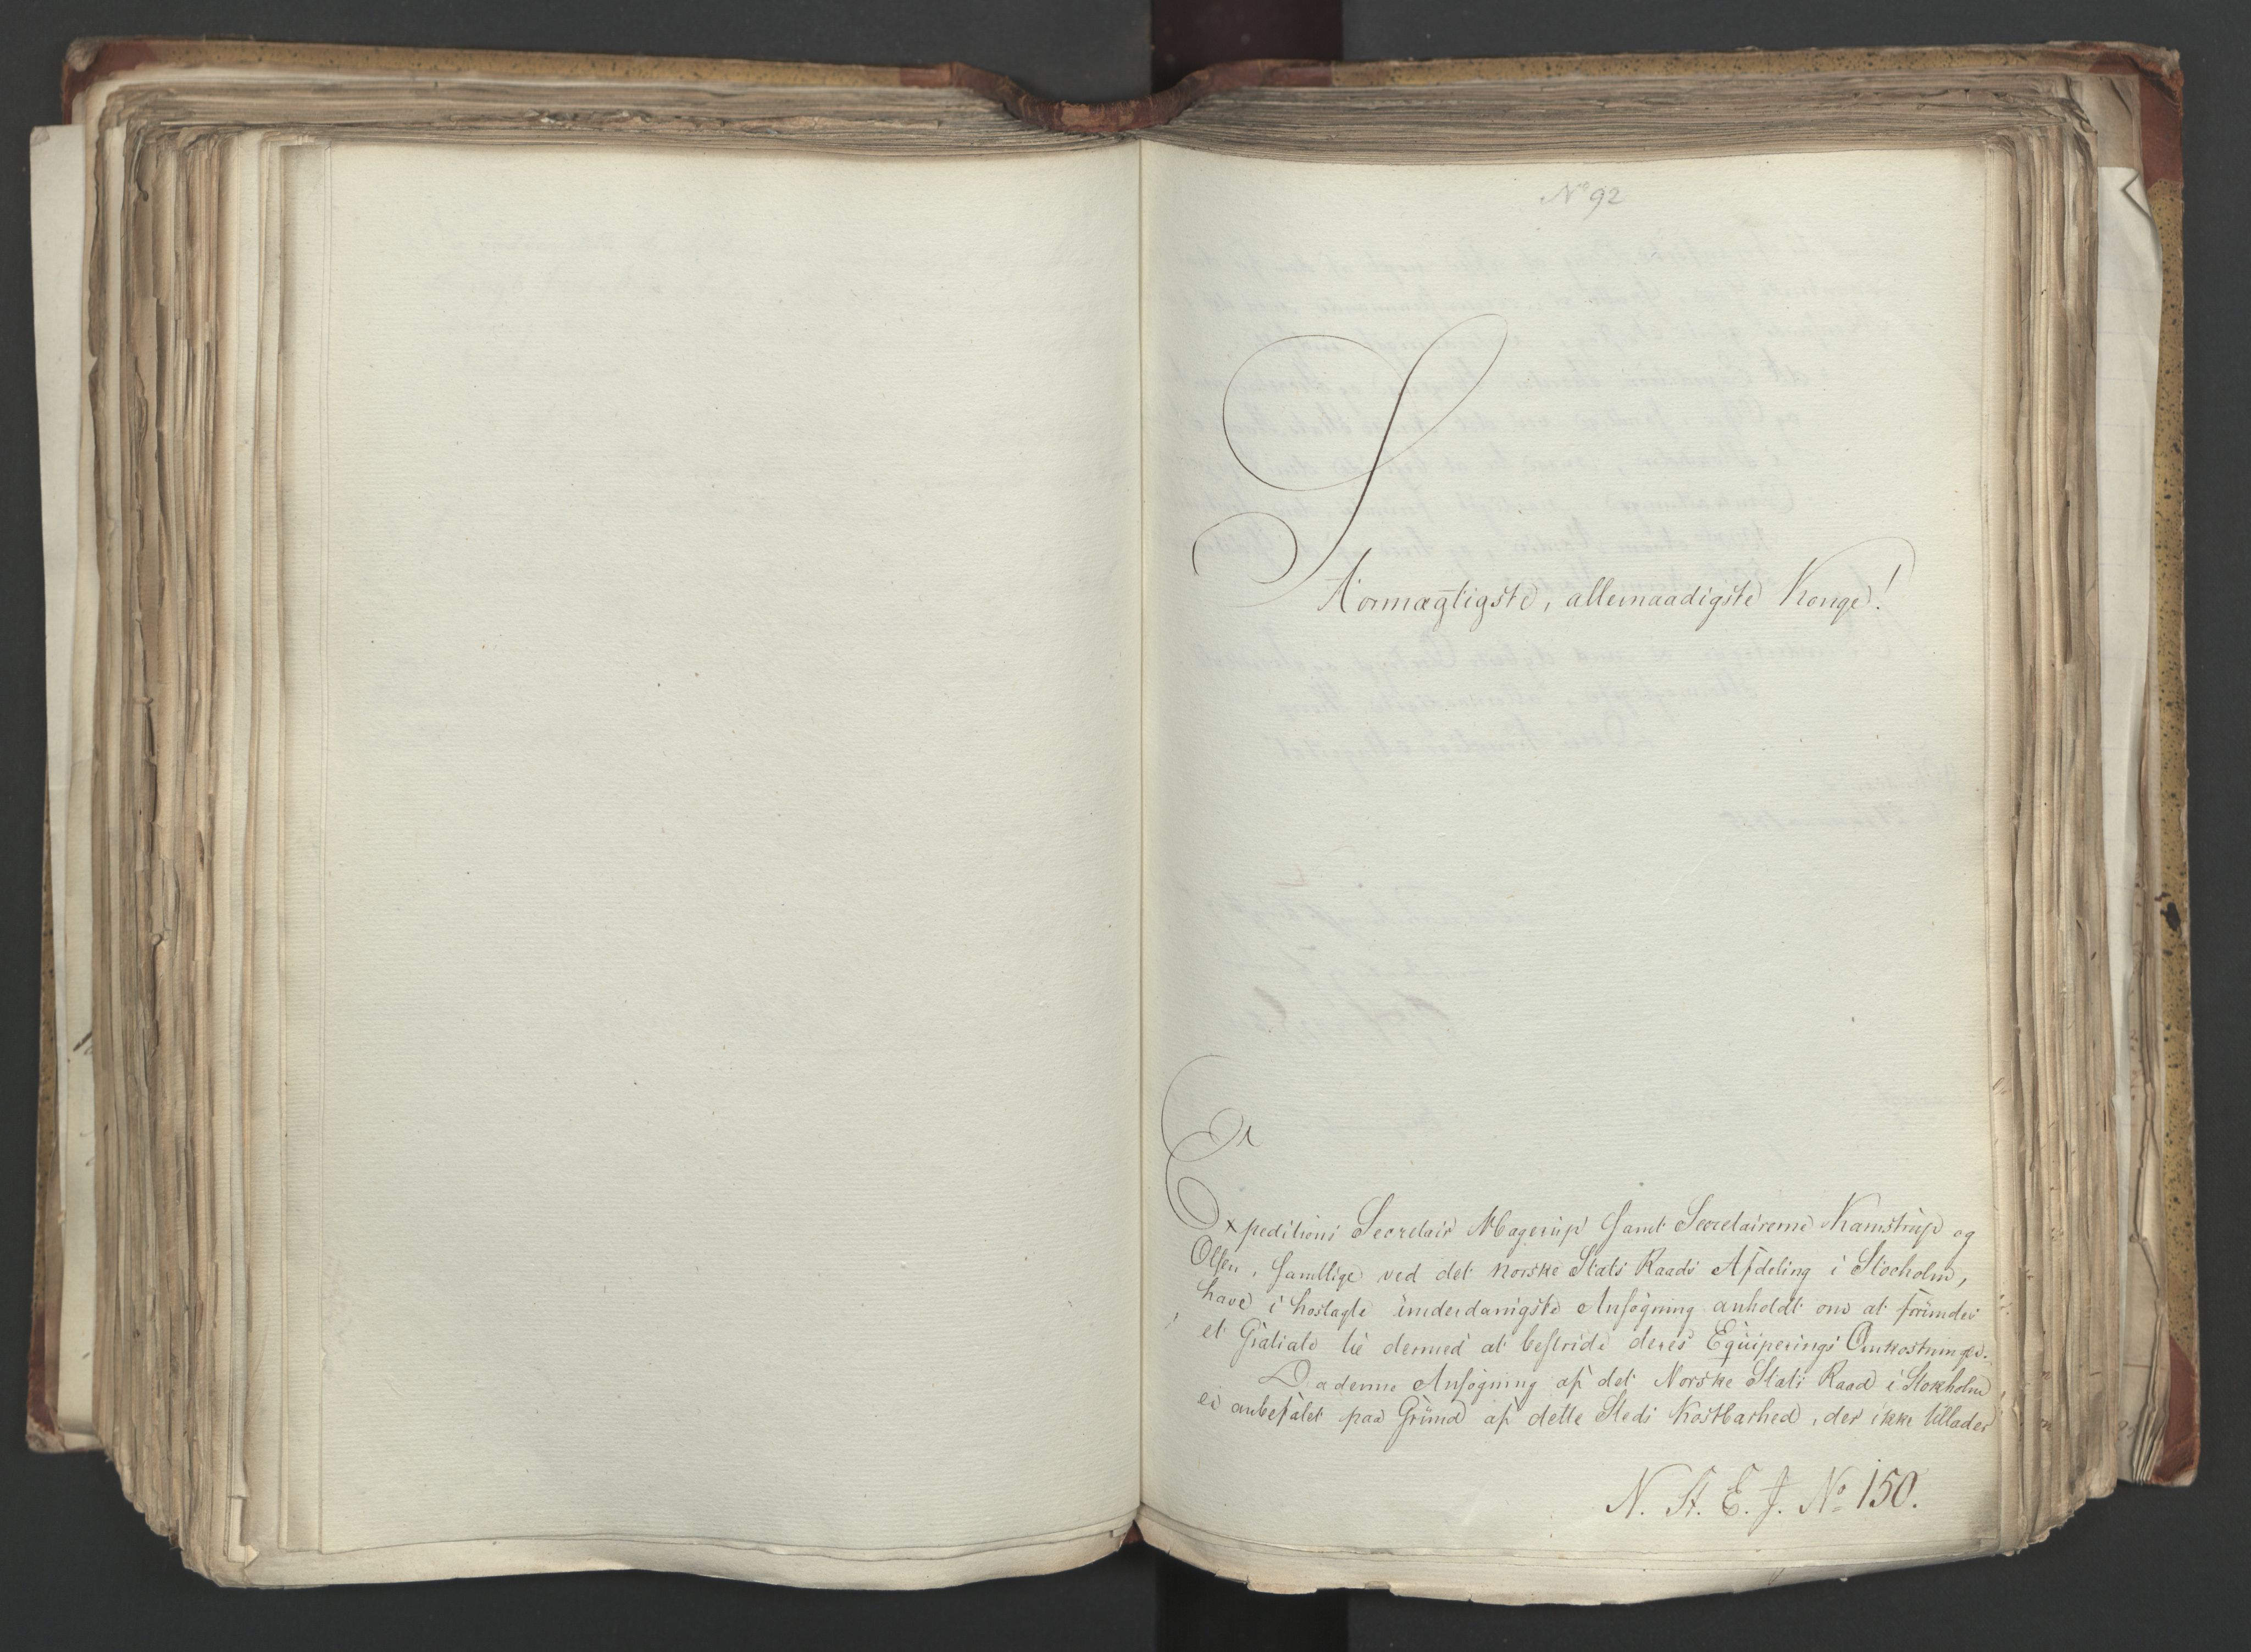 No 92
Stormægtigste, allernaadigste Konge!
Expeditions Secretair Magerup samt Secretairerne Kamstrup og
Olsen, samtlige ved det norske Stats Raads Afdeling i Stocholm,
have i hoslagte underdanigste Ansøgning anholdt om at forundes
et Gratiale til dermed at bestride deres Equiperings Omkostninger.
Da denne Ansøgning af det Norske Stats Raad i Stokholm,
er anbefalet paa Grund af dette Steds Kostbarhed, der ikke tillader
N. St. E. J. No 150.